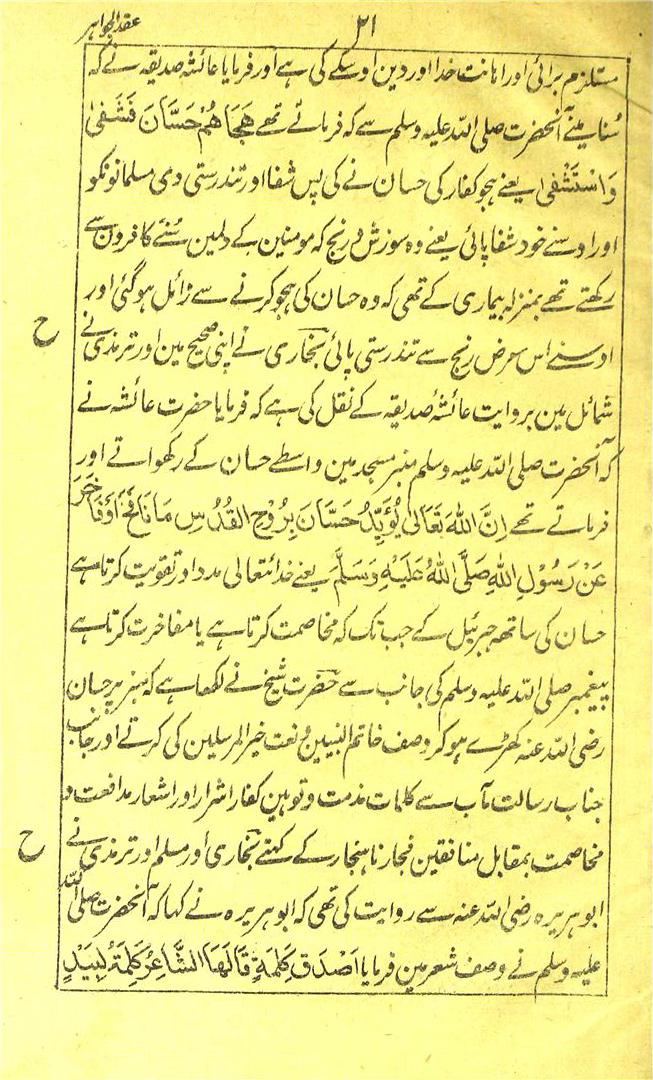 ۲۱
عقد الجواہر
مستلزم برائی اور اہانت خدا اور دین اوسکے کی ہے اور فرمایا عائشہ صدیقہ نے کہ
سُنا مینے آنحضرت صلی اللہ علیہ وسلم سے کہ فرماتے تھے هَجَاهُمْ حَسَّانَ فَشَفىٰ
وَاسْتَشْفىٰ یعنے ہجو کفار کی حسان نے کی پس شفا اور تندرستی دی مسلمانونکو
اور اوسنے خود شفا پائی یعنے وہ سوزش و رنج کہ مومنین کے دلمین سُننے کافرون سے
رکھتے تھے بمنزلہ بیماری کے تھی کہ وہ حسان کی ہجو کرنے سے زائل ہو گئی اور
اوسنے اس مرض رنج سے تندرستی پائی بخاری نے اپنی صحیح مین اور ترمذی نے
ح
شمائل مین بروایت عائشہ صدیقہ کے نقل کی ہے کہ فرمایا حضرت عائشہ نے
کہ آنحضرت صلی اللہ علیہ وسلم منبر مسجد مین واسطے حسان کے رکھواتے اور
فرماتے تھے إِنَّ اللهَ تَعَالىٰ يُؤَيِّدُ حَسَّانَ بِرُوْحِ القُدُسِ مَا نَافَحَ أَوْ فَاخَرَ
عَنْ رَسُوْلِ اللهِ صَلَّى اللهُ عَلَيْهِ وَسَلَّمَ یعنے خدا تعالی مدد اور تقویت کرتا ہے
حسان کی ساتھ جبرئیل کے جب تک کہ مخاصمت کرتا ہے یا مفاخرت کرتا ہے
پیغمبر صلی اللہ علیہ وسلم کی جانب سے حضرت شیخ نے لکھا ہے کہ منبر پر حسان
رضی اللہ عنہ کھڑے ہو کر وصف خاتم النبیین و نعت خیر المرسلین کی کرتے اور جانب
جناب رسالت مآب سے کلمات مذمت و توہین کفار اشرار اور اشعار مدافعت و
مخاصمت بمقابل منافقین فجار ناہنجار کے کہتے بخاری اور مسلم اور ترمذی نے
ح
ابو ہریرہ رضی اللہ عنہ سے روایت کی تھی کہ ابو ہریرہ نے کہا کہ آنحضرت صلی اللہ
علیہ وسلم نے وصف شعر مین فرمایا اَصْدَقُ كَلِمَةٍ قَالَهَا الشَّاعِرُ كَلِمَةُ لَبِيْدٍ